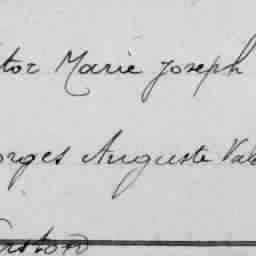 tor Marie Joseph
orges Auguste Val